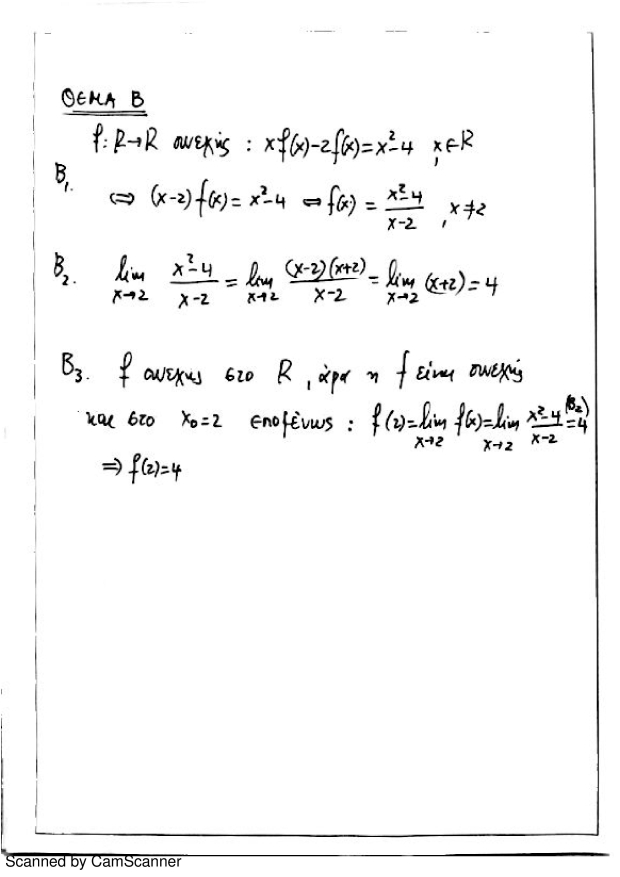 ΘΕΜΑ Β
f: R→R συνεχής : x f(x)-2f(x)=x²-4 , x∈R
B₁. ⇔ (x-2) f(x) = x²-4 ⇔ f(x) = (x²-4)/(x-2) , x≠2
B₂. lim x→2 (x²-4)/(x-2) = lim x→2 (x-2)(x+2)/(x-2) = lim x→2 (x+2) = 4
B₃. f συνεχης στο R , άρα η f είναι συνεχής
και στο x₀=2 επομένως : f(2)=lim x→2 f(x)=lim x→2 (x²-4)/(x-2) (B₂)= 4
⇒ f(2)=4
Scanned by CamScanner